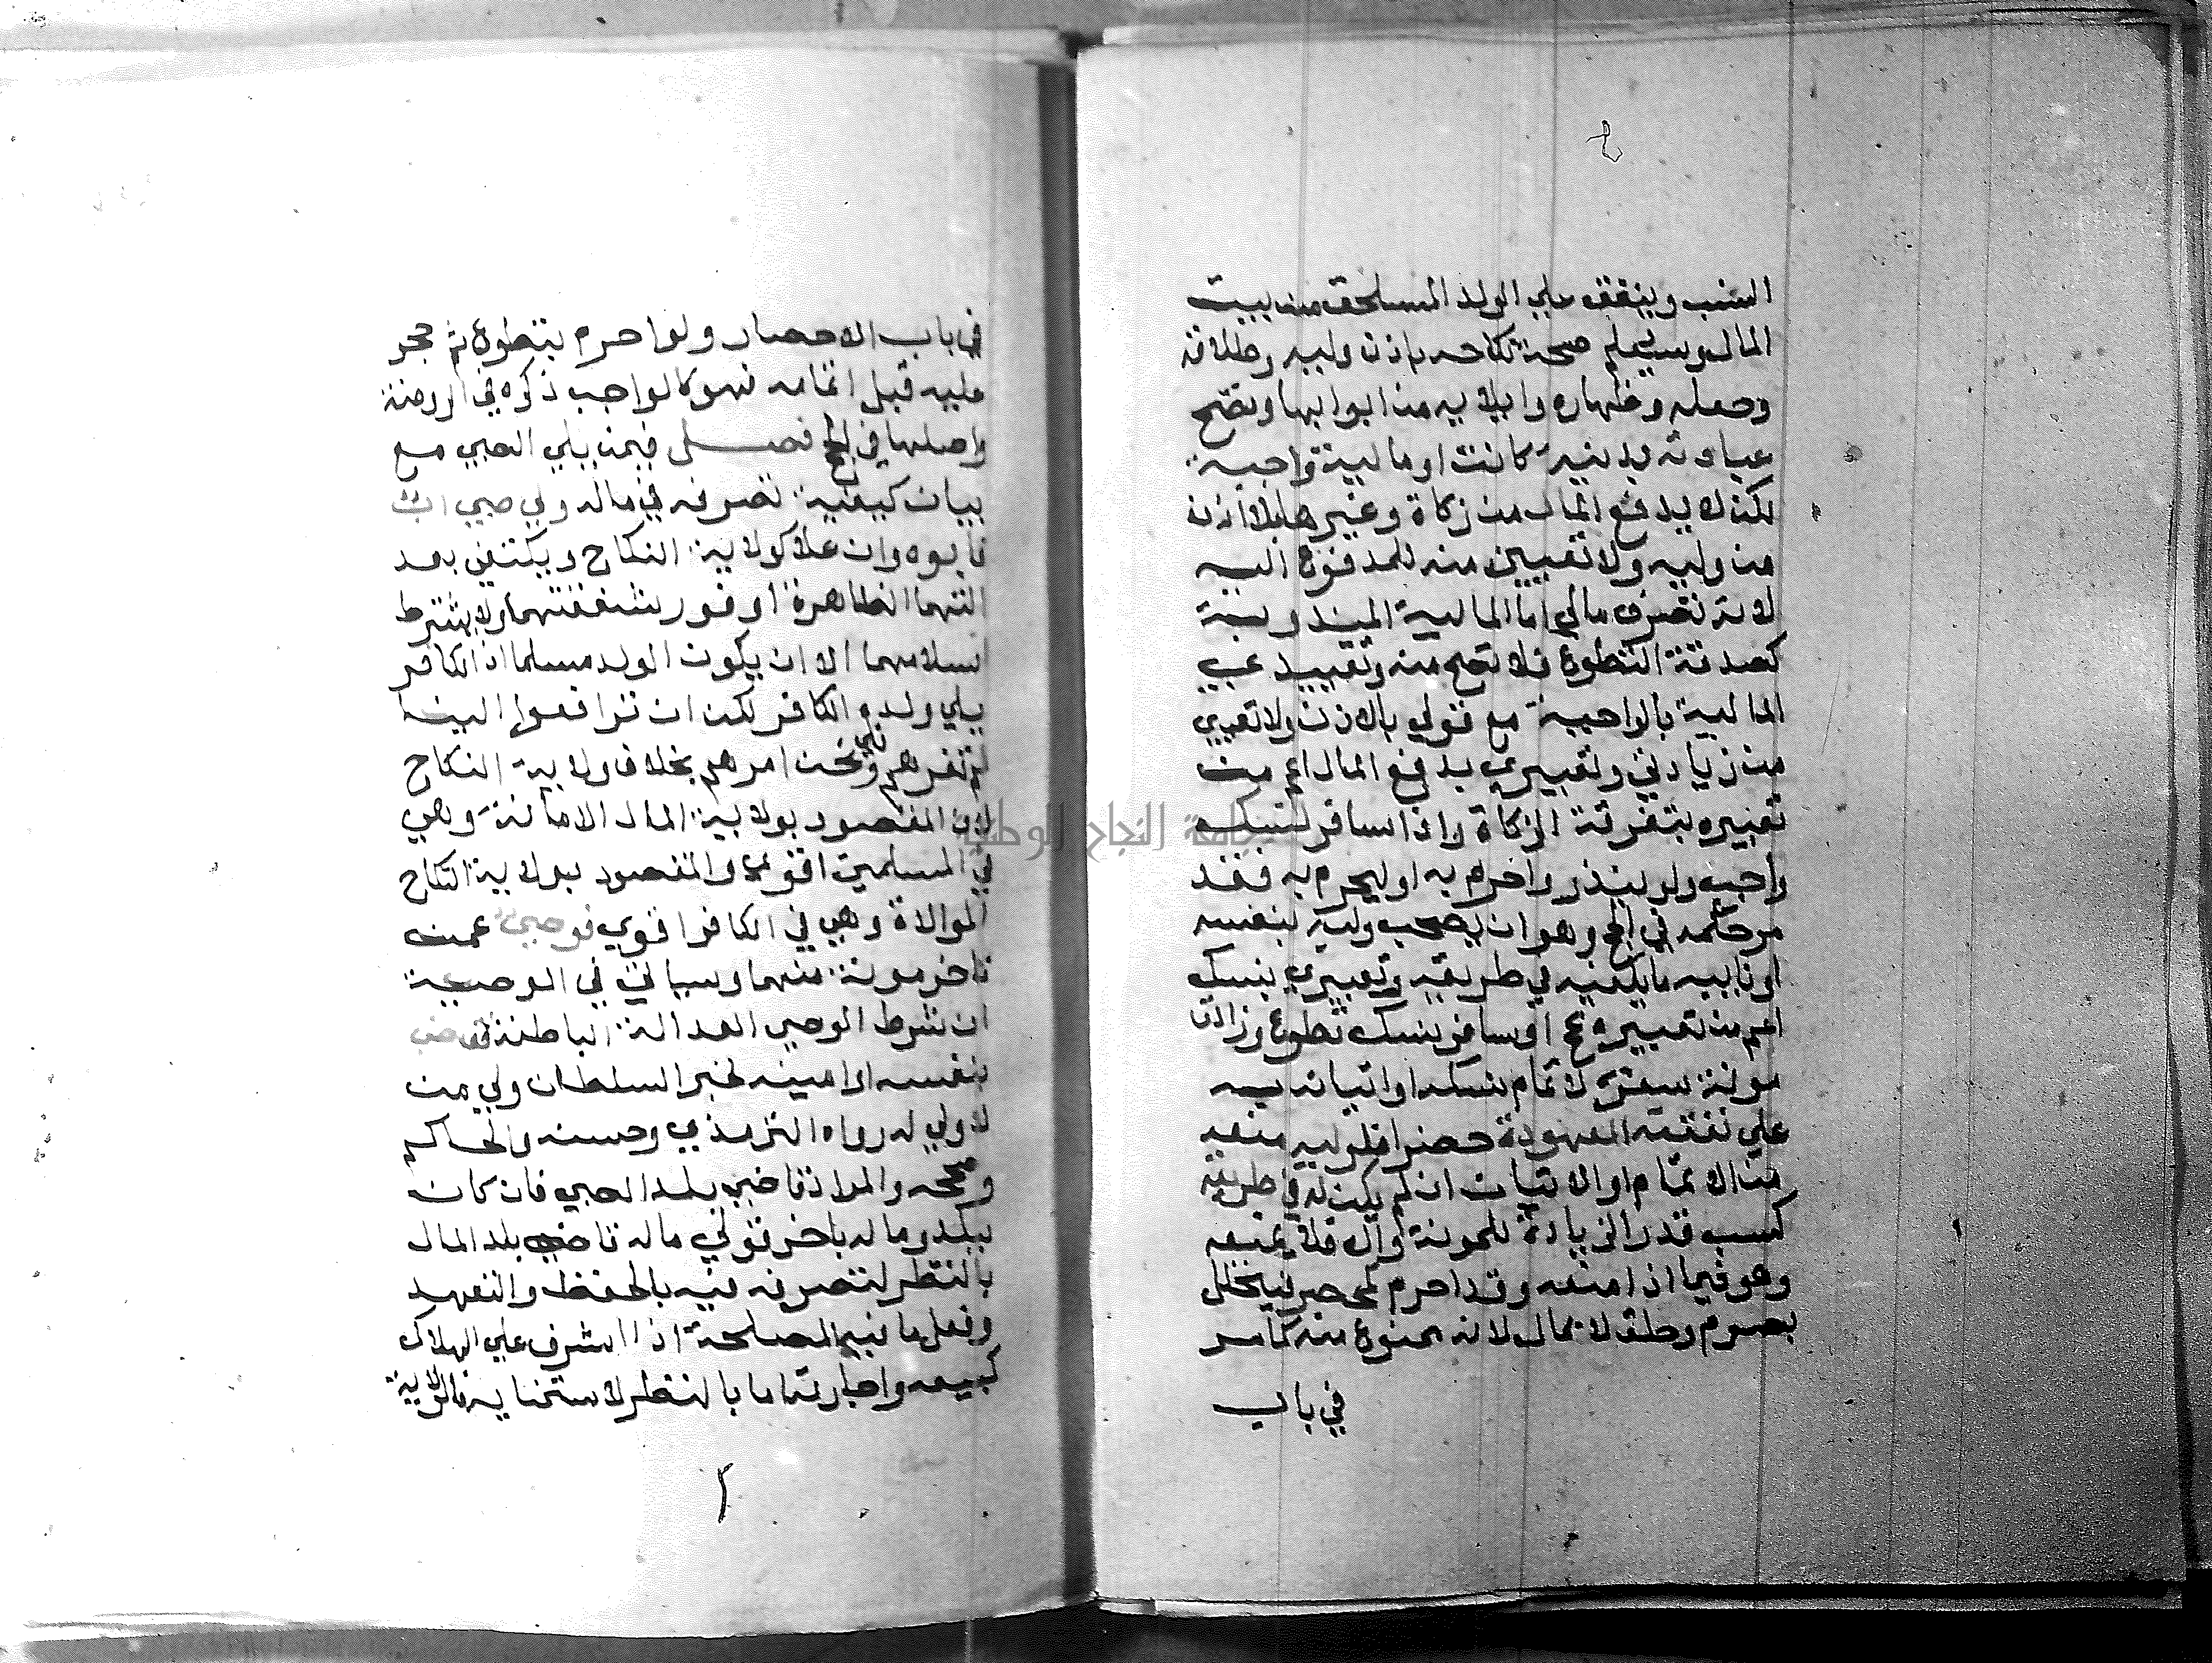 النسب وينفق علي الولد المستلحق من بيت
المال وسيعلم صحة نكاحه باذن وليه وطلاقه
وخلعه وظهاره وايلايه من ابوابها وتصح
عبادته بدنية كانت او مالية واجبة
لكن لا يدفع المال من زكاة وغيرها بلا اذن
من وليه ولا تعيين منه للمدفوع اليه
لانه تصرف مالي اما المالية المندوبة
كصدقة التطوع فلا تصح منه وتقييد
المالية بالواجبة مع قولي بالاذن ولا تعيين
من زيادتي وتعبيري بدفع المال اعم من
تعبيره بتفرقة الزكاة واذا سافر لنسك
واجب ولو بنذر واحرم به او ليحرم به فقد
مر حكمه في الحج وهو ان يصحب وليه بنفسه
او نايبه ما يكفيه في طريقه وتعبيري بنسك
اعم من تعبيره بحج او سافر لنسك تطوع وزادت
مونة سفره لاتمام نسكه او اتيانه به
علي نفقته المعهودة حضرا فلوليه منعه
من الاتمام او الاتيان ان لم يكن له في طريقه
كسب قدر الزيادة للمونة والا فلا يمنعه
وهو فيما اذا منعه وقد احرم كمحصر فيتحلل
بصوم وحلق لا بمال لانه ممنوع منه كما مر
في باب
في باب الاحصار ولو احرم بتطوع ثم حجر
عليه قبل اتمامه فهو كالواجب ذكره في الروضة
واصلها في الحج فصل فيمن يلي الصبي مع
بيان كيفية تصرفه في ماله ولي صبي اب
فابوه وان علا كولاية النكاح ويكتفي بعد
التهما الظاهرة لوفور شفقتهما ولا يشترط
اسلامهما الا ان يكون الولد مسلما اذ الكافر
يلي ولده الكافر لكن ان ترافعوا الينا
لم نقرهم ونلي نحن امرهم بخلاف ولاية النكاح
لان المقصود بولاية المال الامانة وهي
في المسلمين اقوي والمقصود بولاية النكاح
الموالاة وهي في الكافر اقوي فوصي عمن
تاخر موته منهما وسياتي في الوصية
ان شرط الوصي العدالة الباطنة فقاض
بنفسه او امينه لخبر السلطان ولي من
لا ولي له رواه الترمذي وحسنه والحاكم
وصححه والمراد قاضي بلد الصبي فان كان
ببلد وماله باخر فولي ماله قاضي بلد المال
بالنظر لتصرفه فيه بالحفظ والتعهد
وفعل ما فيه المصلحة اذا اشرف علي الهلاك
كبيعه واجارته اما بالنظر لاستنمايه فالولاية